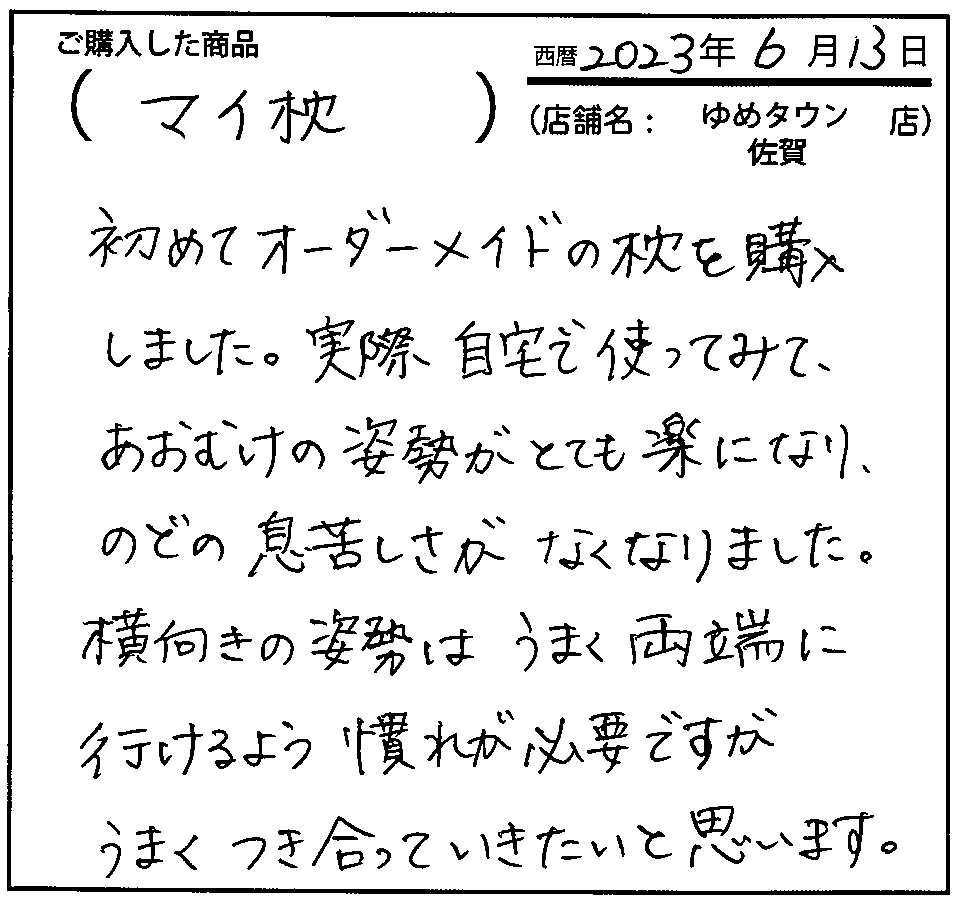 ご購入した商品
西暦2023年6月13日
(マイ枕)
(店舗名：ゆめタウン佐賀店)
初めてオーダーメイドの枕を購入
しました。実際、自宅で使ってみて、
あおむけの姿勢がとても楽になり、
のどの息苦しさがなくなりました。
横向きの姿勢はうまく両端に
行けるよう慣れが必要ですが
うまくつき合っていきたいと思います。